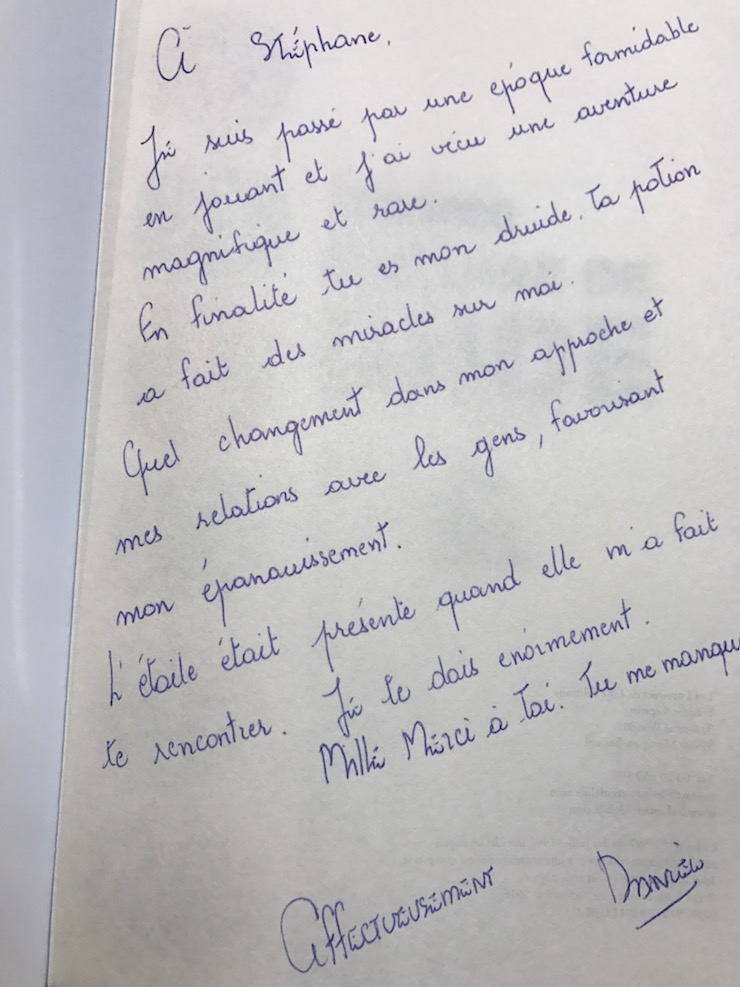 À Stéphane,
Je suis passé par une époque formidable
en jouant et j'ai vécu une aventure
magnifique et rare.
En finalité tu es mon druide. Ta potion
a fait des miracles sur moi.
Quel changement dans mon approche et
mes relations avec les gens, favorisant
mon épanouissement.
L'étoile était présente quand elle m'a fait
te rencontrer. Je te dois énormement.
Mille Merci à Toi. Tu me manqu
Affectueusement